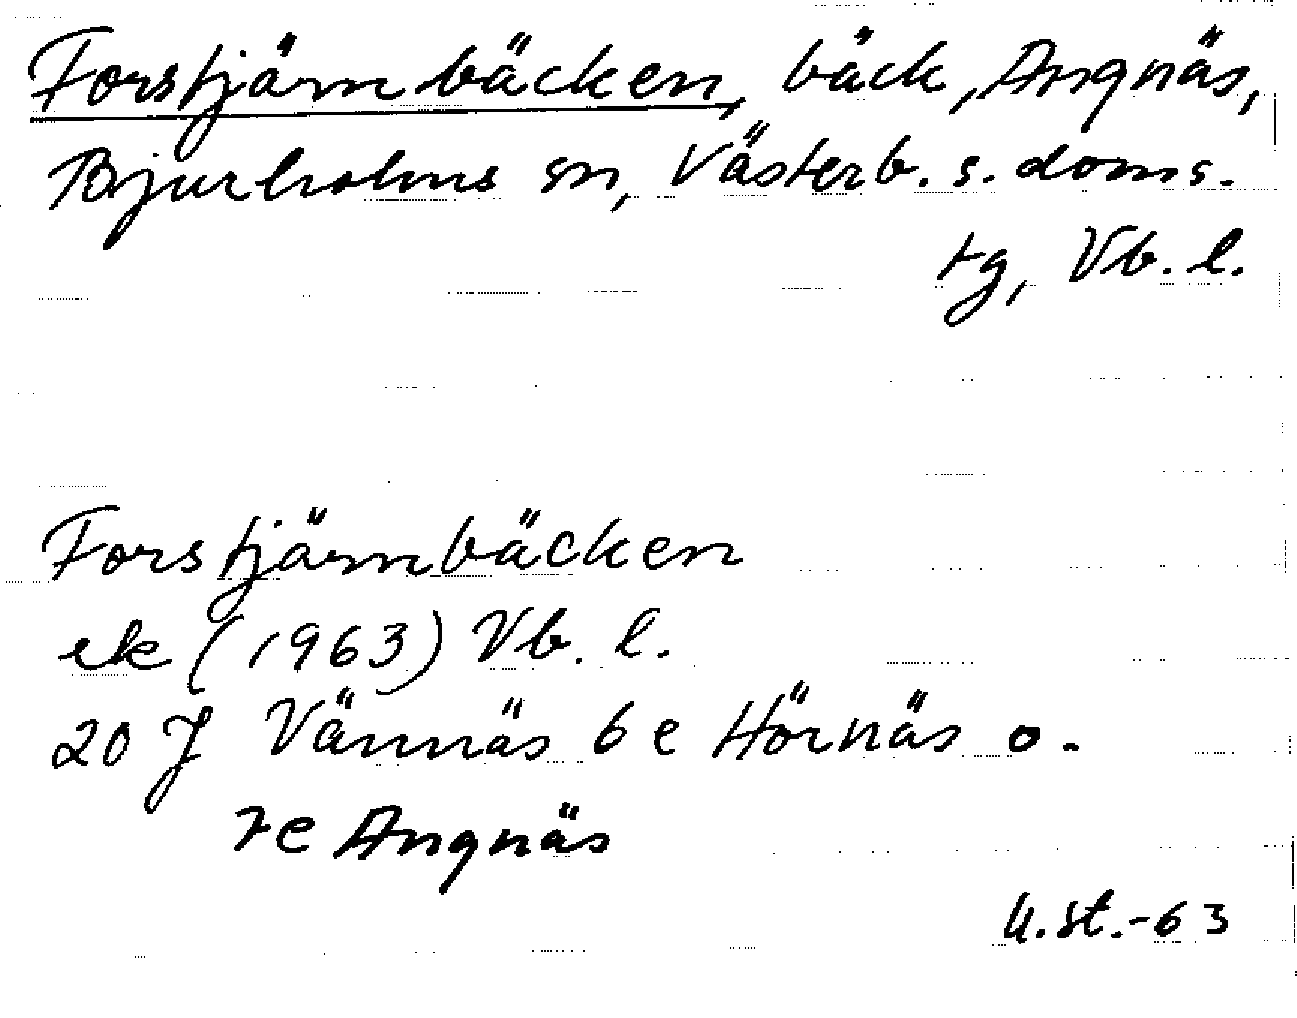 Forstjärnbäcken, bäck, Angnäs,
Bjurholms sn, Västerb. s. doms.
tg, Vb. l.
Forstjärnbäcken
ek (1963) Vb. l.
20 J Vännäs 6 e Hörnäs o.
7e Angnäs
U.St.-63